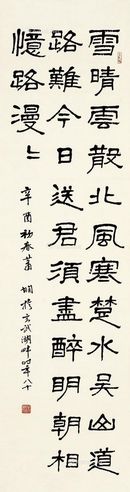 雪晴雲散北風寒楚水吴山道
路難今日送君須盡醉明朝相
憶路漫〻
辛酉初春蕭嫻於玄武湖畔時年八十